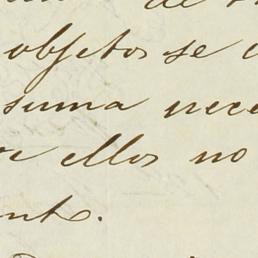 de
objetos se
suma nece
ellos no
ento.